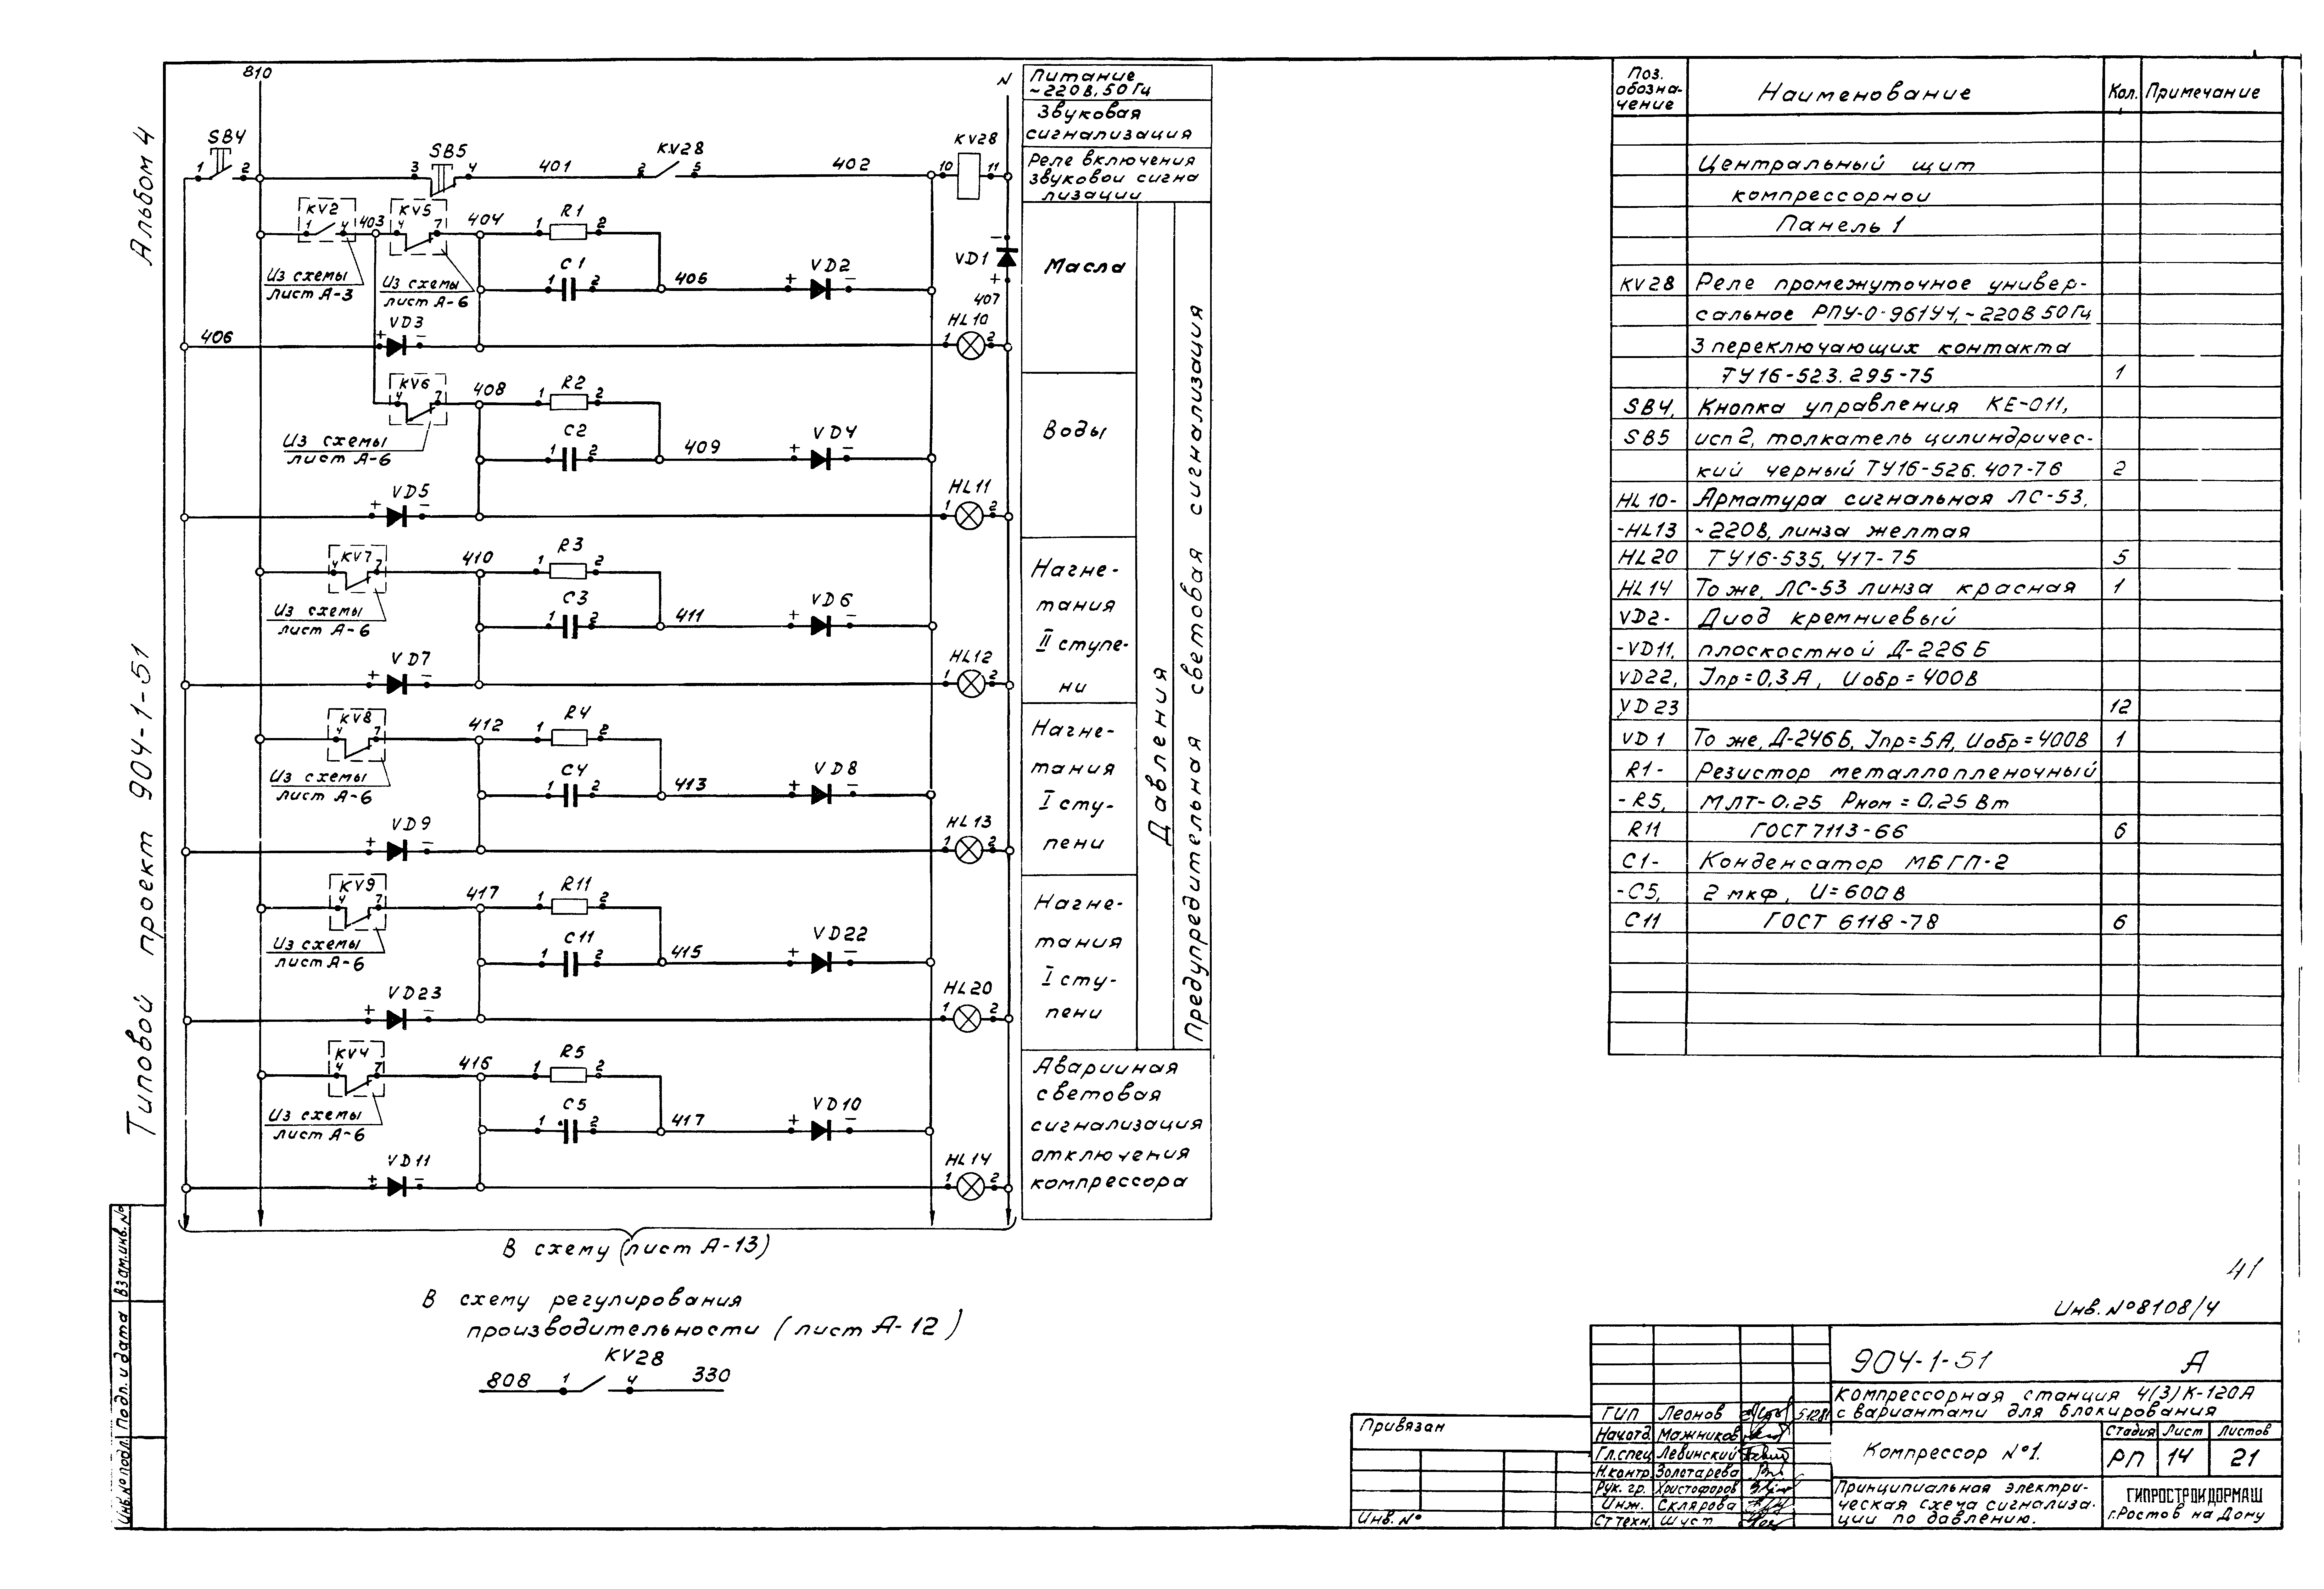 Альбом 4
Типовой проект 904-1-51
810
N
SB4
1
2
3
SB5
4
401
KV28
2
5
402
KV28
10
11
KV2
1
4
403
KV5
4
7
404
R1
1
2
Из схемы
лист А-3
Из схемы
лист А-6
C1
1
2
406
+
VD2
-
-
VD1
+
407
406
VD3
+
-
HL10
1
2
KV6
4
7
408
R2
1
2
Из схемы
лист А-6
C2
1
2
409
+
VD4
-
VD5
+
-
HL11
1
2
KV7
4
7
410
R3
1
2
Из схемы
лист А-6
C3
1
2
411
+
VD6
-
VD7
+
-
HL12
1
2
KV8
4
7
412
R4
1
2
Из схемы
лист А-6
C4
1
2
413
+
VD8
-
VD9
+
-
HL13
1
2
KV9
4
7
417
R11
1
2
Из схемы
лист А-6
C11
1
2
415
+
VD22
-
VD23
+
-
HL20
1
2
KV4
4
7
416
R5
1
2
Из схемы
лист А-6
C5
1
2
417
+
VD10
-
VD11
+
-
HL14
1
2
В схему (лист А-13)
В схему регулирования
производительности (лист А-12)
KV28
808
1
4
330
Питание
~220В, 50Гц
Звуковая
сигнализация
Реле включения
звуковой сигна
лизации
Масла
Воды
Нагне-
тания
II ступе-
ни
Нагне-
тания
I сту-
пени
Нагне-
тания
I сту-
пени
Давления
Предупредительная световая сигнализация
Аварийная
световая
сигнализация
отключения
компрессора
Поз.
обозна-
чение
Наименование
Кол.
Примечание
Центральный щит
компрессорной
Панель 1
KV28 Реле промежуточное универ-
сальное РПУ-0-961У4, ~220В 50Гц
3 переключающих контакта
ТУ16-523.295-75 1
SB4, Кнопка управления КЕ-011,
SB5 исп 2, толкатель цилиндричес-
кий черный ТУ16-526.407-76 2
HL10- Арматура сигнальная ЛС-53,
-HL13 ~220В, линза желтая
HL20 ТУ16-535.417-75 5
HL14 То же, ЛС-53 линза красная 1
VD2- Диод кремниевый
-VD11, плоскостной Д-226Б
VD22, Iпр=0,3А, Uобр=400В
VD23 12
VD1 То же, Д-246Б, Iпр=5А, Uобр=400В 1
R1- Резистор металлопленочный
-R5, МЛТ-0,25 Рном=0,25Вт
R11 ГОСТ 7113-66 6
C1- Конденсатор МБГП-2
-C5, 2 мкф, U=600В
C11 ГОСТ 6118-78 6
41
Инв.№8108/4
Взам.инв.№
Подп. и дата
Инв.№подл.
Привязан
Инв.№
904-1-51 А
ГИП Леонов 5.1281
Нач.отд. Мажников
Гл.спец Левинский
Н.контр. Золотарева
Рук. гр. Христофоров
Инж. Склярова
Ст техн. Шуст
Компрессорная станция 4(3)К-120А
с вариантами для блокирования
Компрессор №1.
Стадия Лист Листов
РП 14 21
Принципиальная электри-
ческая схема сигнализа-
ции по давлению.
ГИПРОСТРОЙДОРМАШ
г.Ростов на Дону